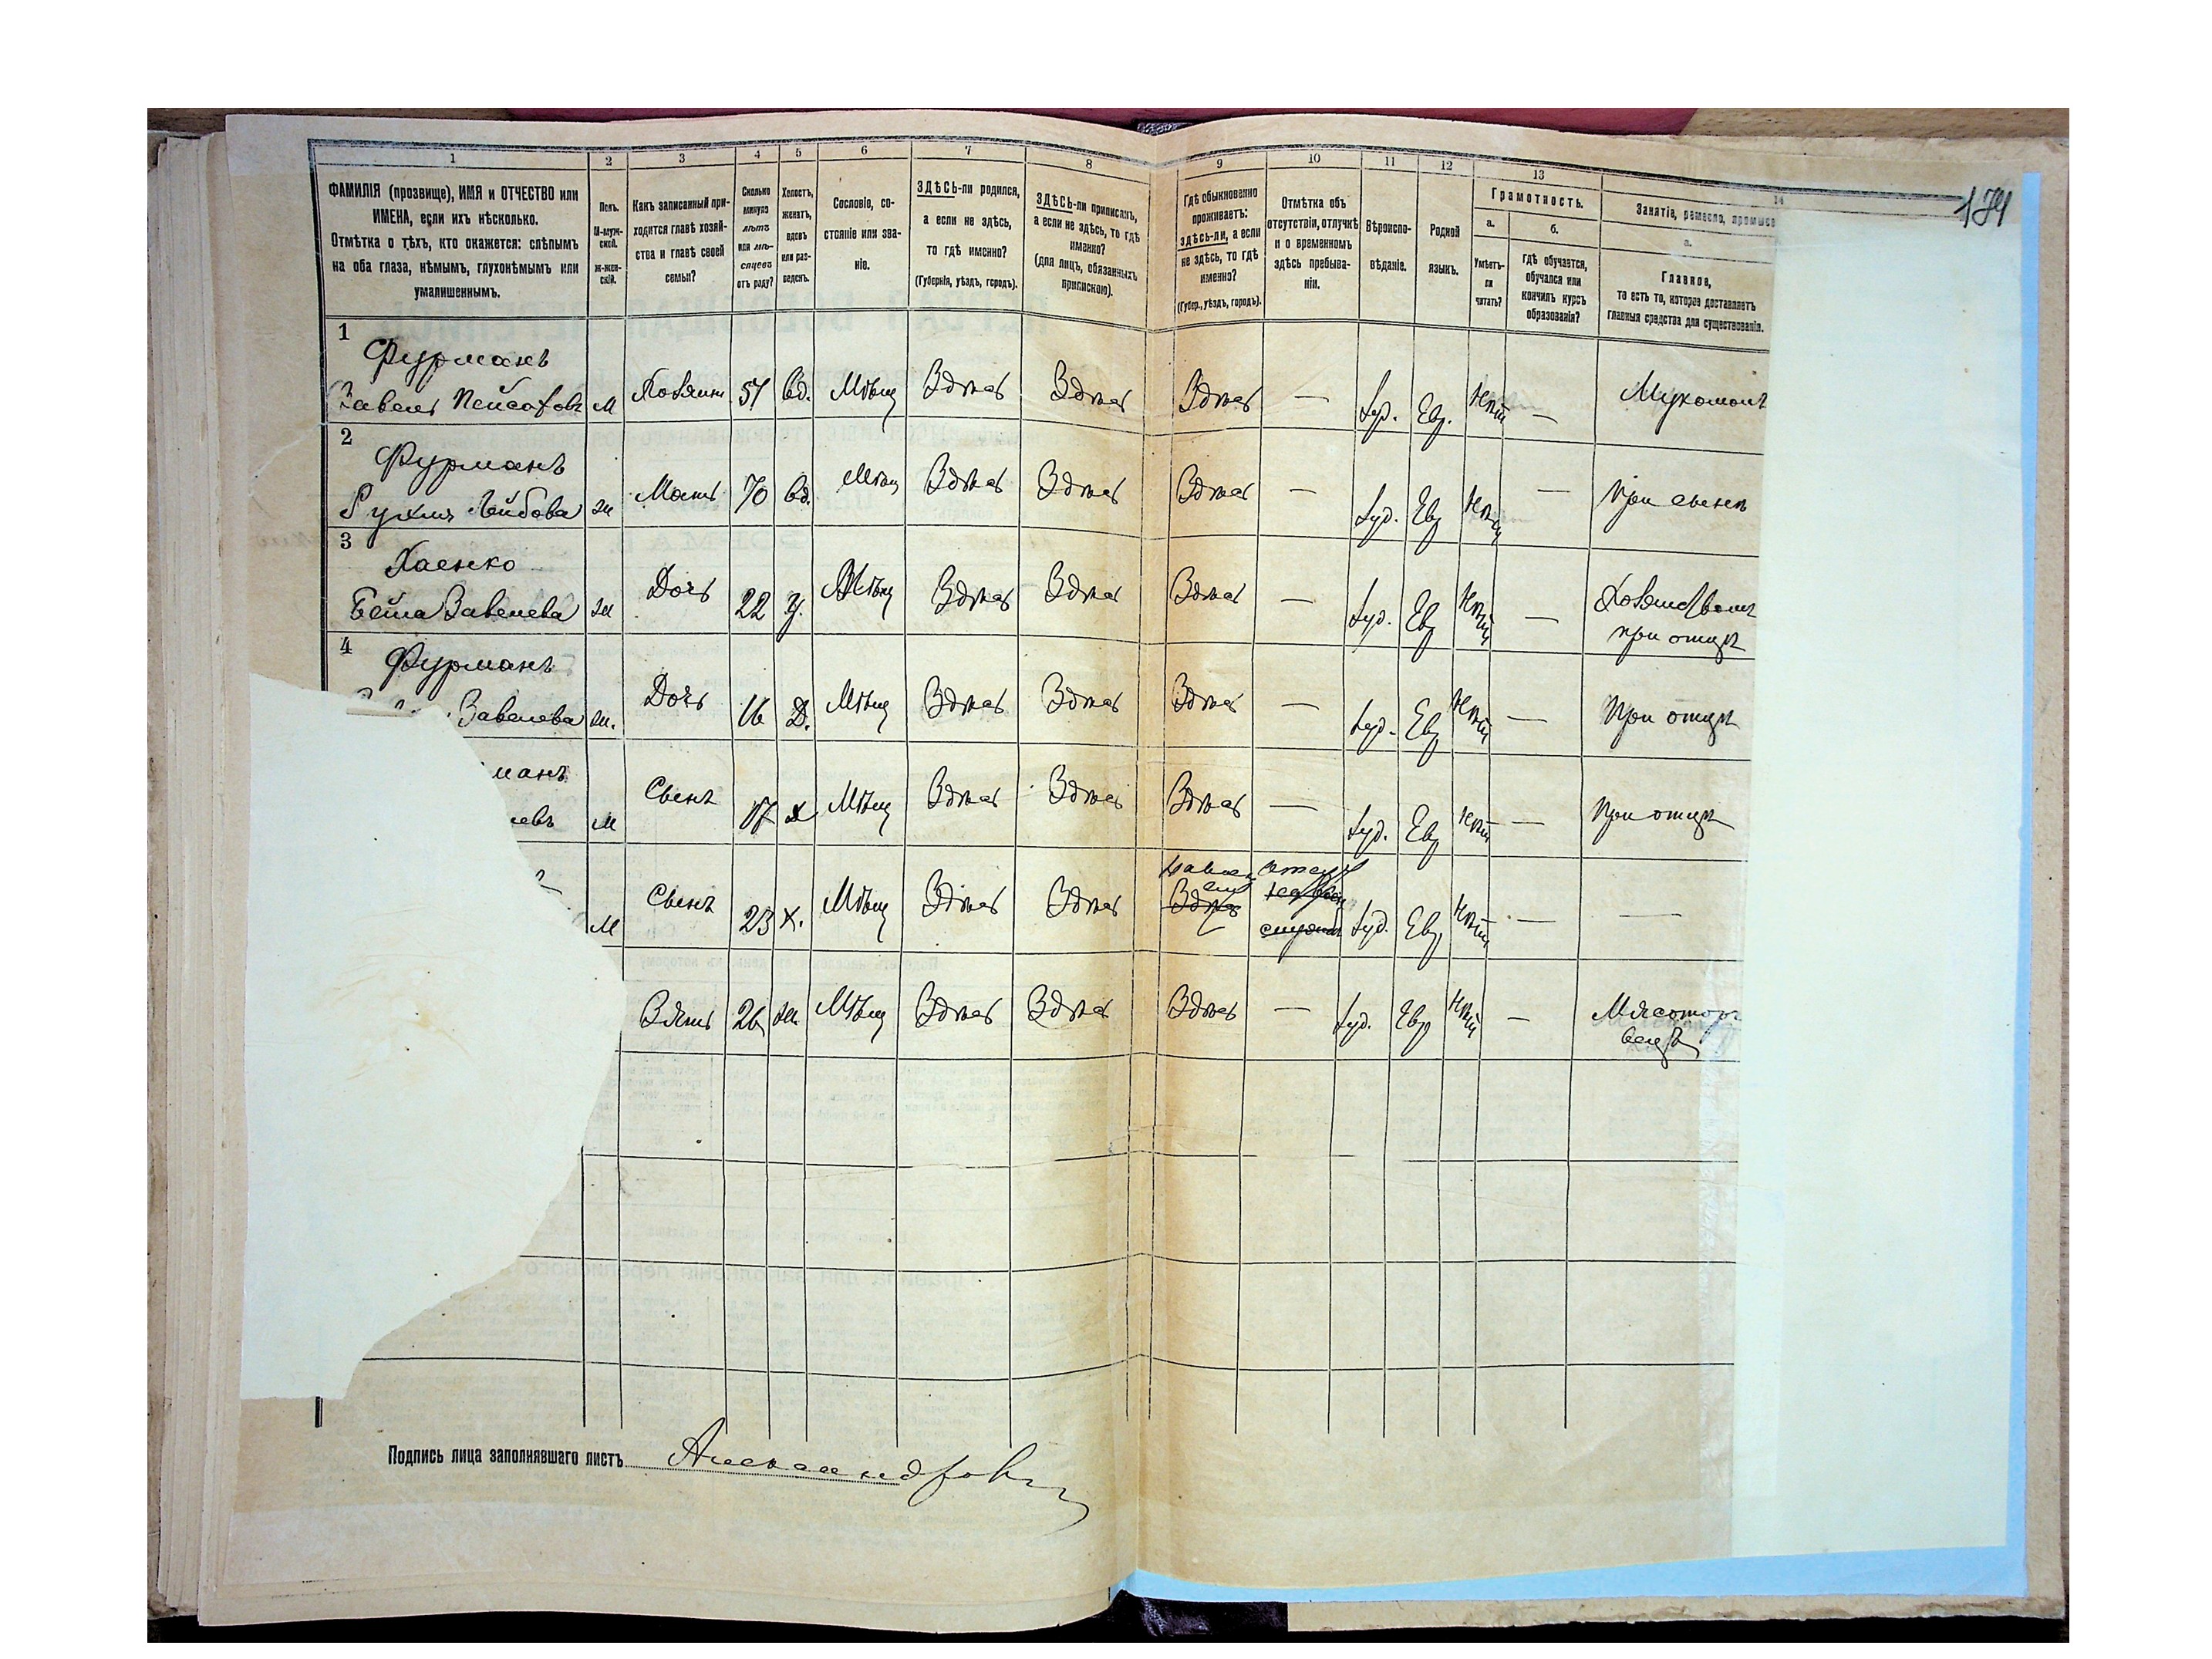 1 2 3 4 5 6 7 8 9 10 11 12 13 14
174
ФАМИЛІЯ (прозвище), ИМЯ и ОТЧЕСТВО или
ИМЕНА, если ихъ нѣсколько.
Отмѣтка о тѣхъ, кто окажется: слѣпымъ
на оба глаза, нѣмымъ, глухонѣмымъ или
умалишеннымъ.
Полъ.
М-муж-
ской.
ж-жен-
скій.
Какъ записанный при-
ходится главѣ хозяй-
ства и главѣ своей
семьи?
Сколько
минуло
лѣтъ
или мѣ-
сяцевъ
отъ роду?
Холостъ,
женатъ,
вдовъ
или раз-
веденъ.
Сословіе, со-
стояніе или зва-
ніе.
ЗДѢСЬ-ли родился,
а если не здѣсь,
то гдѣ именно?
(Губернія, уѣздъ, городъ).
ЗДѢСЬ-ли приписанъ,
а если не здѣсь, то гдѣ
именно?
(для лицъ, обязанныхъ
припискою).
Гдѣ обыкновенно
проживаетъ:
здѣсь-ли, а если
не здѣсь, то гдѣ
именно?
(Губер., уѣздъ, городъ).
Отмѣтка объ
отсутствіи, отлучкѣ
и о временномъ
здѣсь пребыва-
ніи.
Вѣроиспо-
вѣданіе.
Родной
языкъ.
Грамотность.
а.
Умѣетъ-
ли
читать?
б.
гдѣ обучается,
обучался или
кончилъ курсъ
образованія?
Занятіе, ремесло, промысе
а.
Главное,
то есть то, которое доставляетъ
главныя средства для существованія.
1
Фурманъ
Завель Пейсаховъ м Хозяинъ 51 вд. Мѣщ Здѣсь Здѣсь Здѣсь — Іуд. Евр. Нѣтъ — Мукомолъ
2
Фурманъ
Рухля Лейбова ж Мать 70 вд. Мѣщ Здѣсь Здѣсь Здѣсь — Іуд. Евр Нѣтъ — При сынѣ
3
Хаенко
Бейла Завелева ж Дочь 22 З. Мѣщ Здѣсь Здѣсь Здѣсь — Іуд. Евр Нѣтъ —
при отцѣ
4
Фурманъ
Завелева ж. Дочь 16 Д. Мѣщ Здѣсь Здѣсь Здѣсь — Іуд. Евр Нѣтъ — При отцѣ
манъ
левъ м Сынъ 17 х Мѣщ Здѣсь Здѣсь Здѣсь — Іуд. Евр Нѣтъ — При отцѣ
м Сынъ 23 х. Мѣщ Здѣсь Здѣсь Здѣсь Іуд. Евр Нѣтъ — —
Зять 26 ж. Мѣщ Здѣсь Здѣсь Здѣсь — Іуд. Евр Нѣтъ — Мясотор
вецъ
Подпись лица заполнявшаго листъ Александров